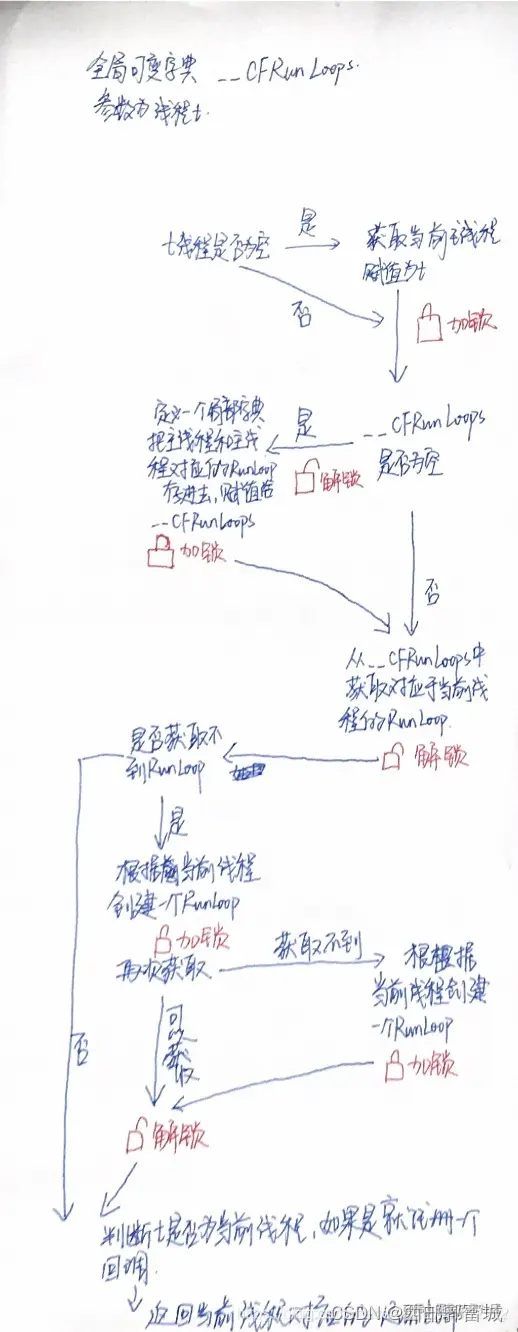 全局可变字典 __CFRunLoops.
参数为线程t.
t线程是否为空
是
获取当前主线程
赋值为t
否
加锁
定义一个局部字典
把主线程和主线
程对应的RunLoop
存进去,赋值给
__CFRunLoops
加锁
是
解锁
__CFRunLoops
是否为空
否
从__CFRunLoops中
获取对应于当前线
程的RunLoop.
解锁
是否获取不
到RunLoop
是
根据当前线程
创建一个RunLoop
加锁
再次获取
获取不到
根据
当前线程创建
一个RunLoop
加锁
否
可以获取
解锁
判断t是否为当前线程,如果是就注册一个
回调.
返回当前线程对应的
CSDN @邯邯郸雷城